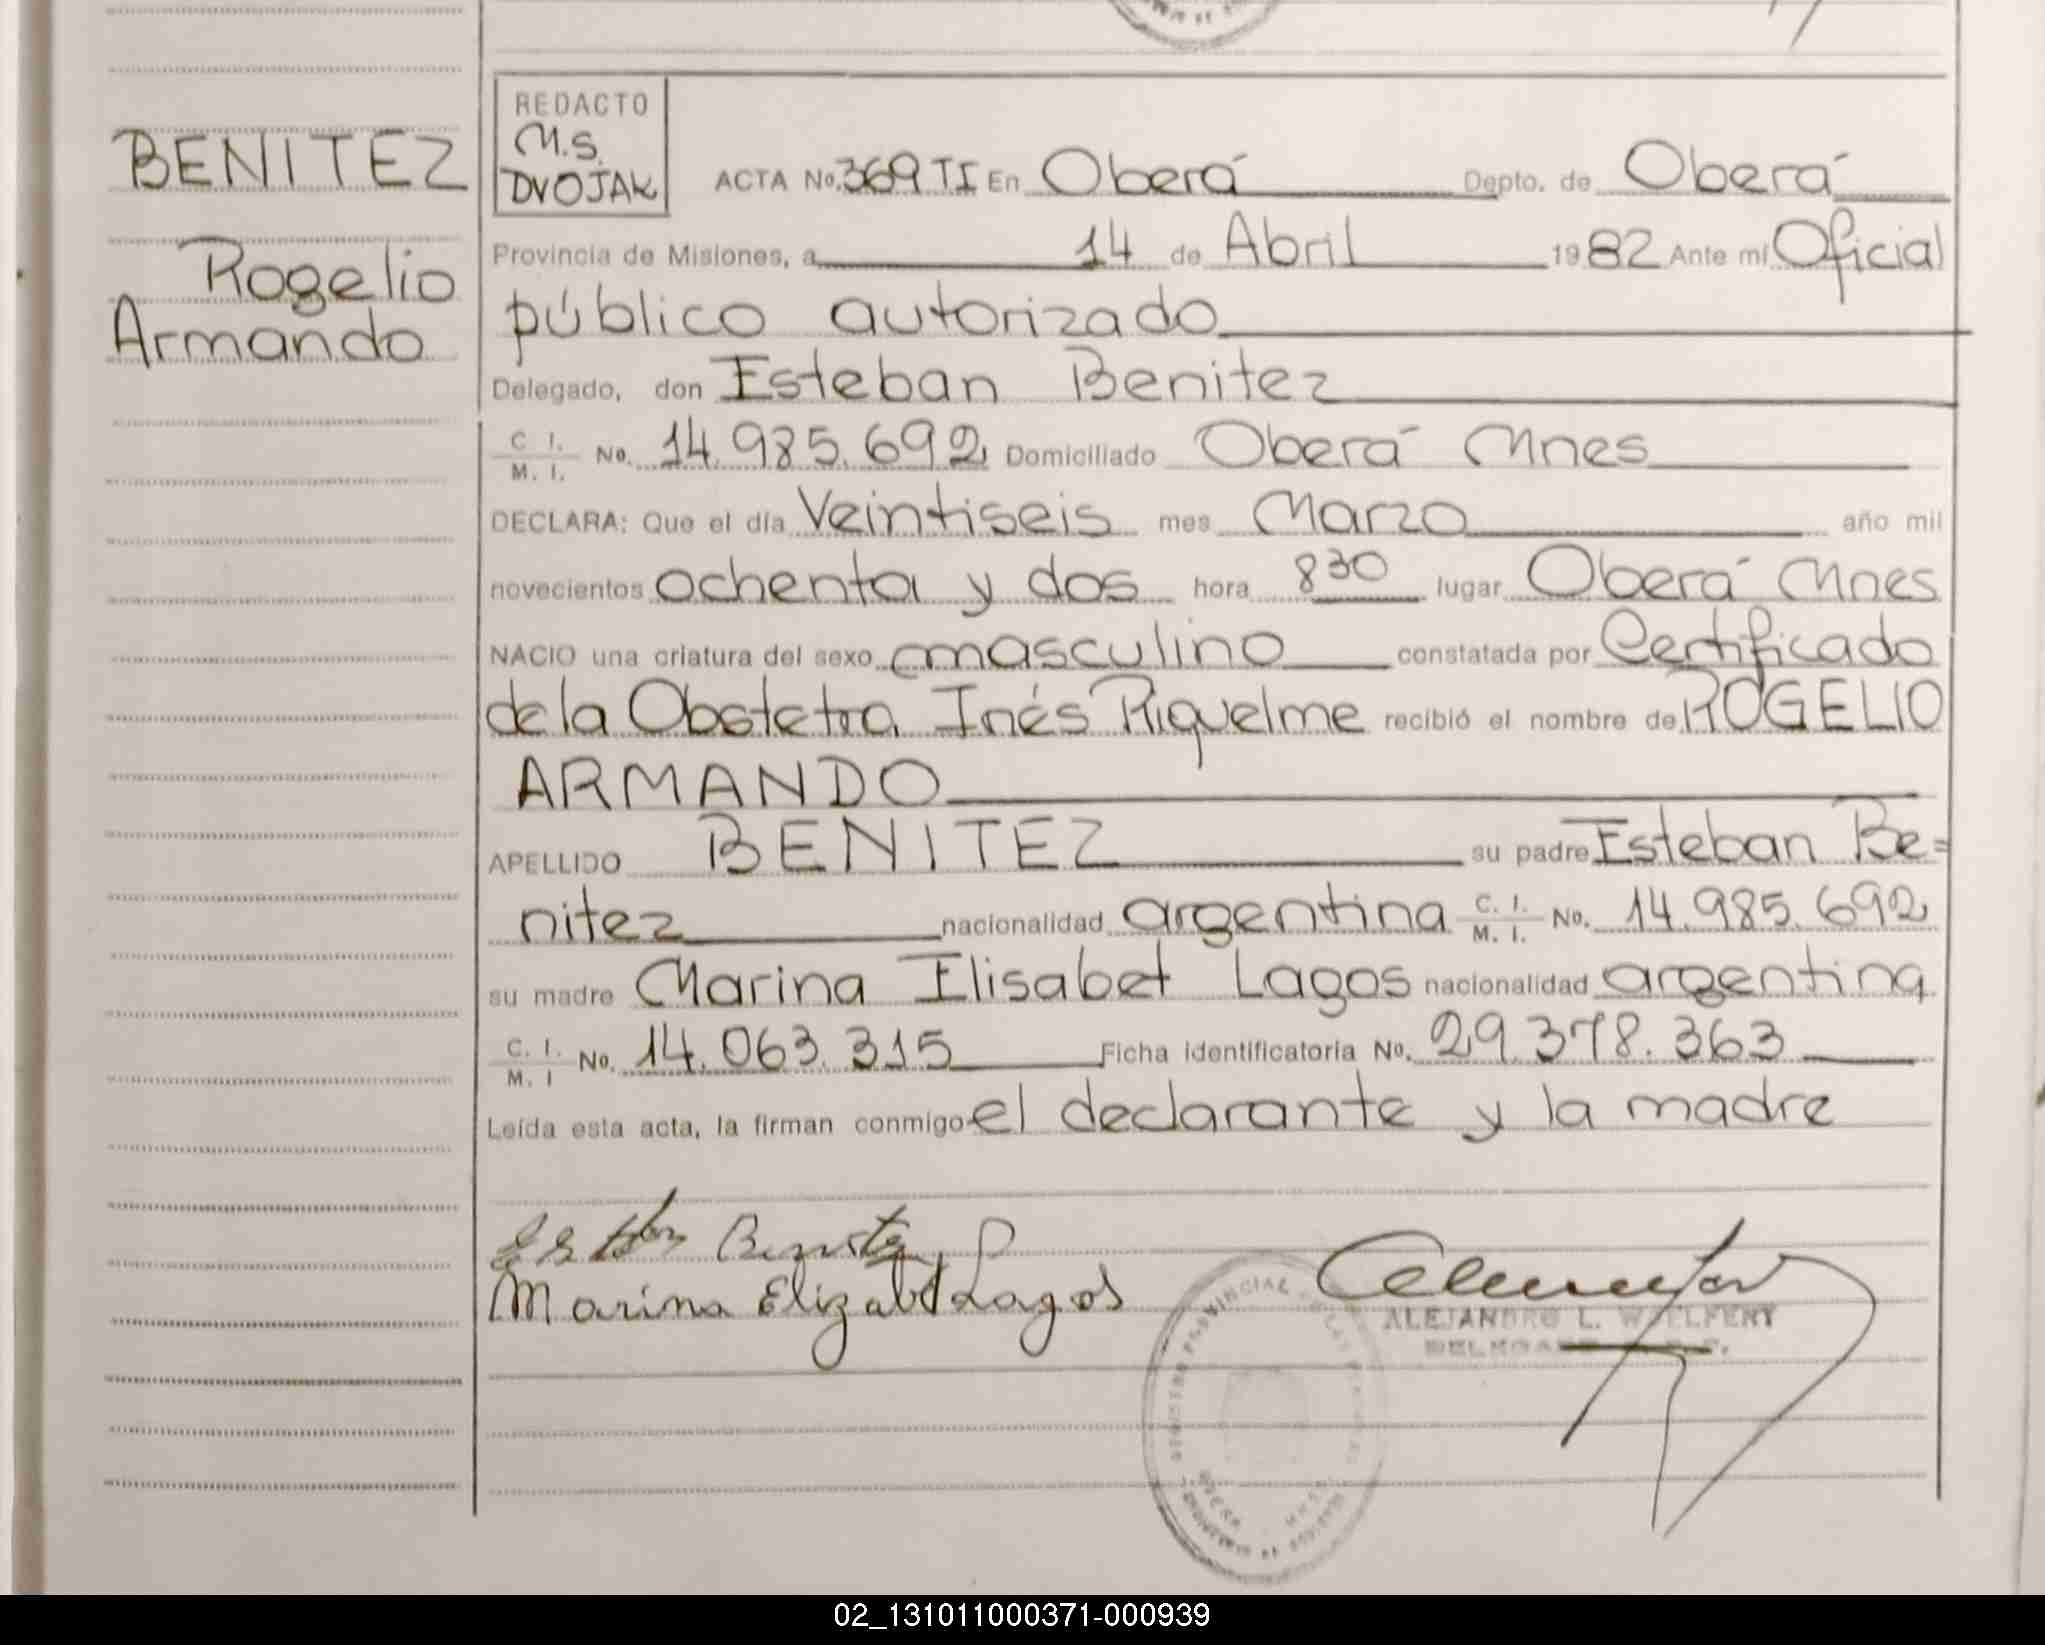 BENITEZ
Rogelio
Armando
REDACTO
M.S.
DVOJAK
ACTA No. 369 TI En Oberá Depto. de Oberá
Provincia de Misiones, a 14 de Abril 1982 Ante mí Oficial
público autorizado
Delegado, don Esteban Benitez
C. I. M. I. No. 14.985.692 Domiciliado Oberá Mnes
DECLARA: Que el día Veintiseis mes Marzo año mil
novecientos ochenta y dos hora 8 30 lugar Oberá Mnes
NACIO una criatura del sexo masculino constatada por Certificado
de la Obstetra Inés Riquelme recibió el nombre de ROGELIO
ARMANDO
APELLIDO BENITEZ su padre Esteban Be=
nitez nacionalidad argentina C. I. M. I. No. 14.985.692
su madre Marina Elisabet Lagos nacionalidad argentina
C. I. M. I No. 14.063.315 Ficha identificatoria No. 29.378.363
Leída esta acta, la firman conmigo el declarante y la madre
Esteban Benitez
Marina Elizabet Lagos
ALEJANDRO L.
PROVINCIAL
02_131011000371-000939